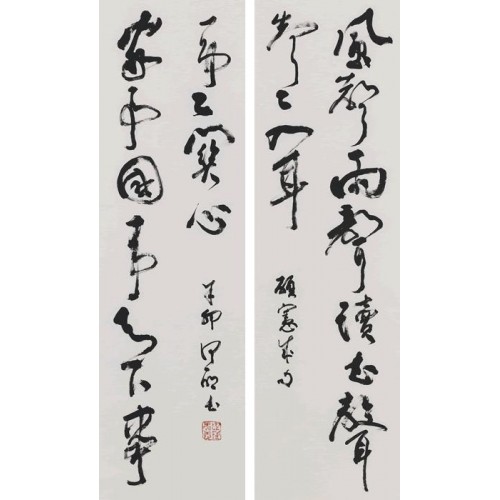 風聲雨聲讀书聲
聲々入耳
顧憲成句
家事國事天下事
事々關心
辛卯 书